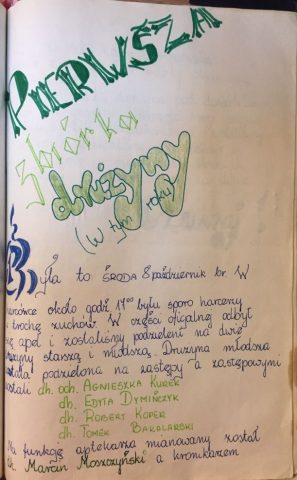 PIERWSZA
zbiórka
drużyny
(w tym roku)
Była to ŚRODA 8 październik br. W
harcówce około godź 17⁰⁰ było sporo harcerzy
i trochę zuchów. W części oficjalnej odbył
się apel i zostaliśmy podzieleni na dwie
drużyny starszą i młodszą. Drużyna młodsza
została podzielona na zastępy a zastępowymi
zostali dh. och. AGNIESZKA KUREK
dh. EDYTA DYMIŃCZYK
dh. ROBERT KOPER
dh. TOMEK BAKALARSKI
Na funkcję aptekarza mianowany został
dh. Marcin Moszczyński a kronikarzem